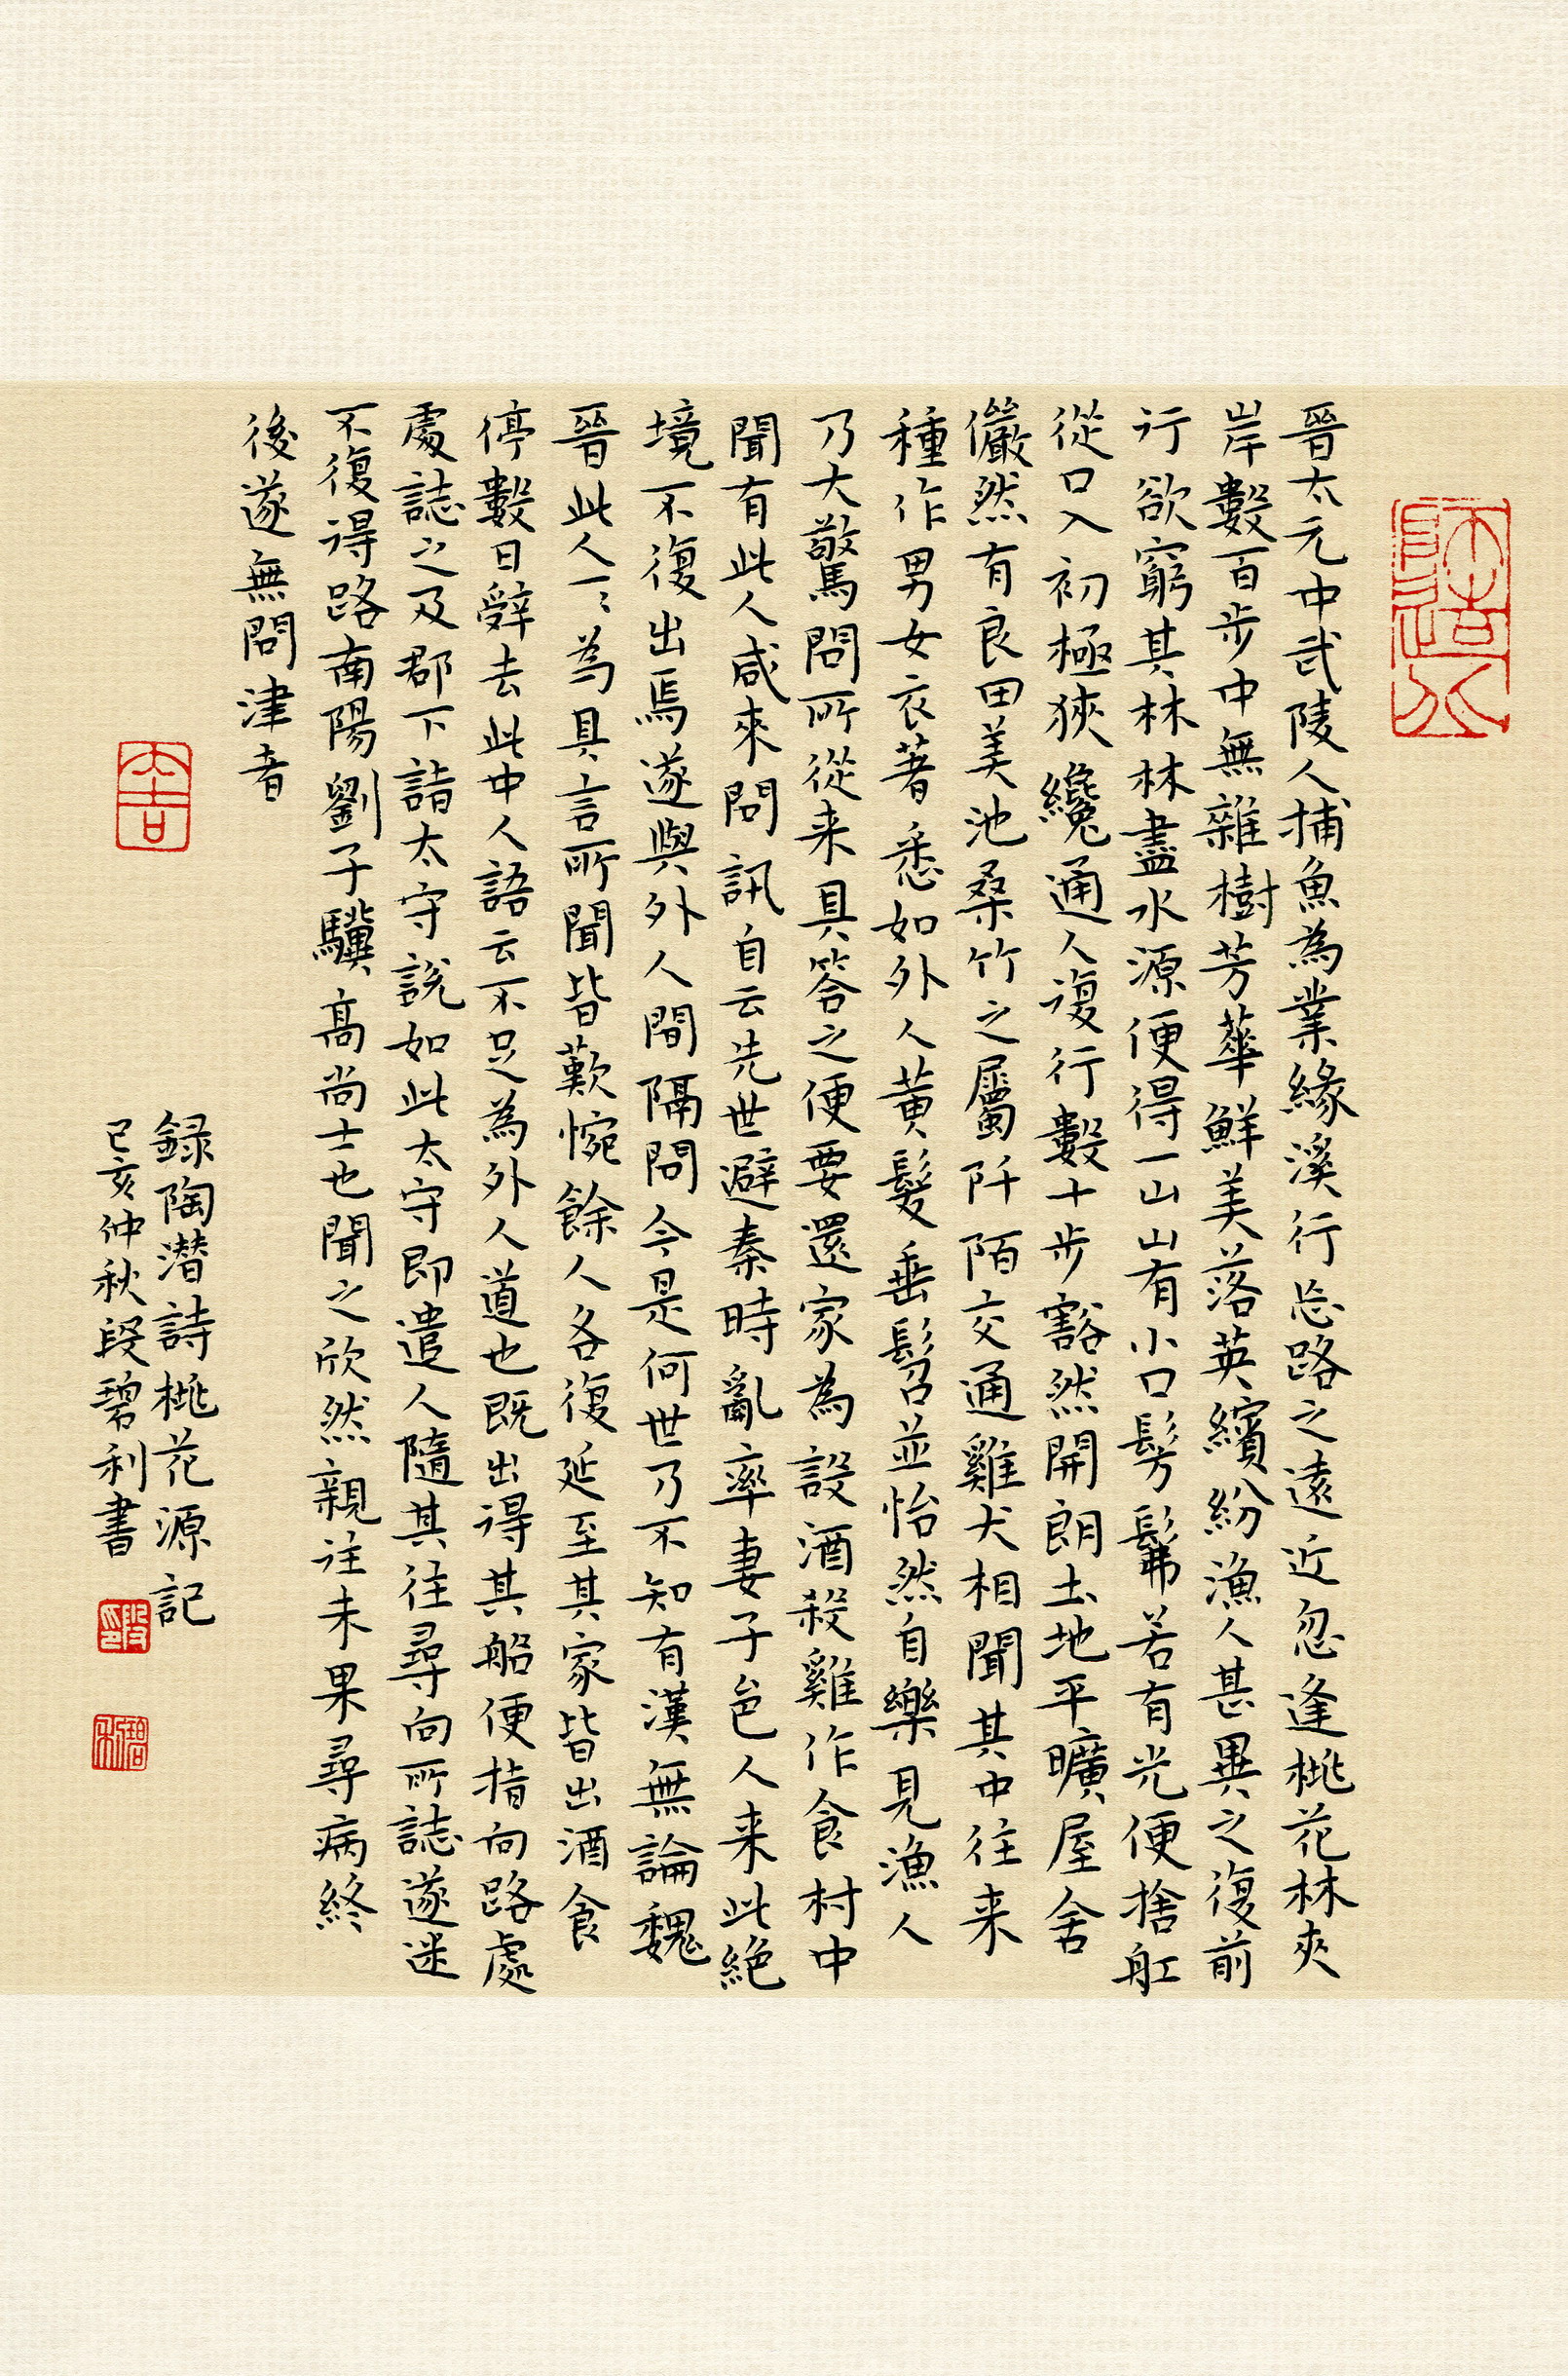 晉太元中武陵人捕魚為業緣溪行忘路之遠近忽逢桃花林夾
岸數百步中無雜樹芳華鮮美落英繽紛漁人甚異之復前
行欲窮其林林盡水源便得一山山有小口髣髴若有光便捨舡
從口入初極狹纔通人復行數十步豁然開朗土地平曠屋舍
儼然有良田美池桑竹之屬阡陌交通雞犬相聞其中往来
種作男女衣著悉如外人黄髮垂髫並怡然自樂見漁人
乃大驚問所從来具答之便要還家為設酒殺雞作食村中
聞有此人咸來問訊自云先世避秦時亂率妻子邑人来此絶
境不復出焉遂與外人間隔問今是何世乃不知有漢無論魏
晉此人一〻為具言所聞皆歎惋餘人各復延至其家皆出酒食
停數日辭去此中人語云不足為外人道也既出得其船便指向路處
處誌之及郡下詣太守說如此太守即遣人隨其往尋向所誌遂迷
不復得路南陽劉子驥高尚士也聞之欣然親往未果尋病終
後遂無問津者
録陶潛詩桃花源記
己亥仲秋段碧利書
大吉
段印
碧利